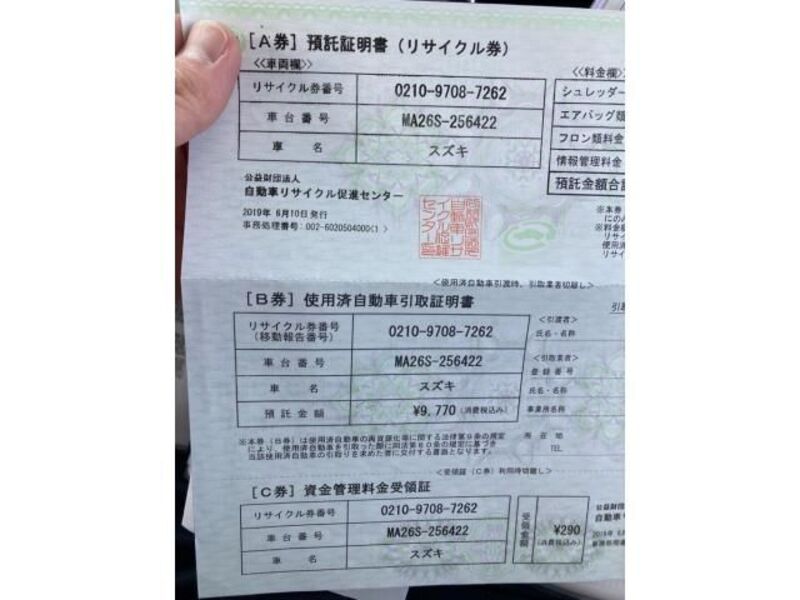 ［A券］預託証明書（リサイクル券）
≪車両欄≫
≪料金欄≫
リサイクル券番号 0210-9708-7262
シュレッダー
車台番号 MA26S-256422
エアバッグ類
フロン類料金
車名 スズキ
情報管理料金
預託金額合計
公益財団法人
自動車リサイクル促進センター
2019年 6月10日発行
事務処理番号：002-6020504000<1 >
※本券
※料金欄
リサイ
使用済
リサイ
＜使用済自動車引渡時、引取業者切離し＞
［B券］使用済自動車引取証明書
リサイクル券番号
（移動報告番号） 0210-9708-7262
＜引渡者＞
氏名・名称
車台番号 MA26S-256422
＜引取業者＞
登録番号
車名 スズキ
氏名・名称
預託金額 ¥9,770（消費税込み）
事業所名称
※本券（B券）は使用済自動車の再資源化等に関する法律第９条の規定
により、使用済自動車を引取った際に同法第８０条の規定に基づき
当該使用済自動車の引取りを求めた者に交付する書面となります。
所在地
TEL
＜受領証（C券）利用時切離し＞
［C券］資金管理料金受領証
リサイクル券番号 0210-9708-7262
車台番号 MA26S-256422
車名 スズキ
受領金額 ¥290
（消費税込み）
公益財団
自動車リ
2019年 6月
事務処理番